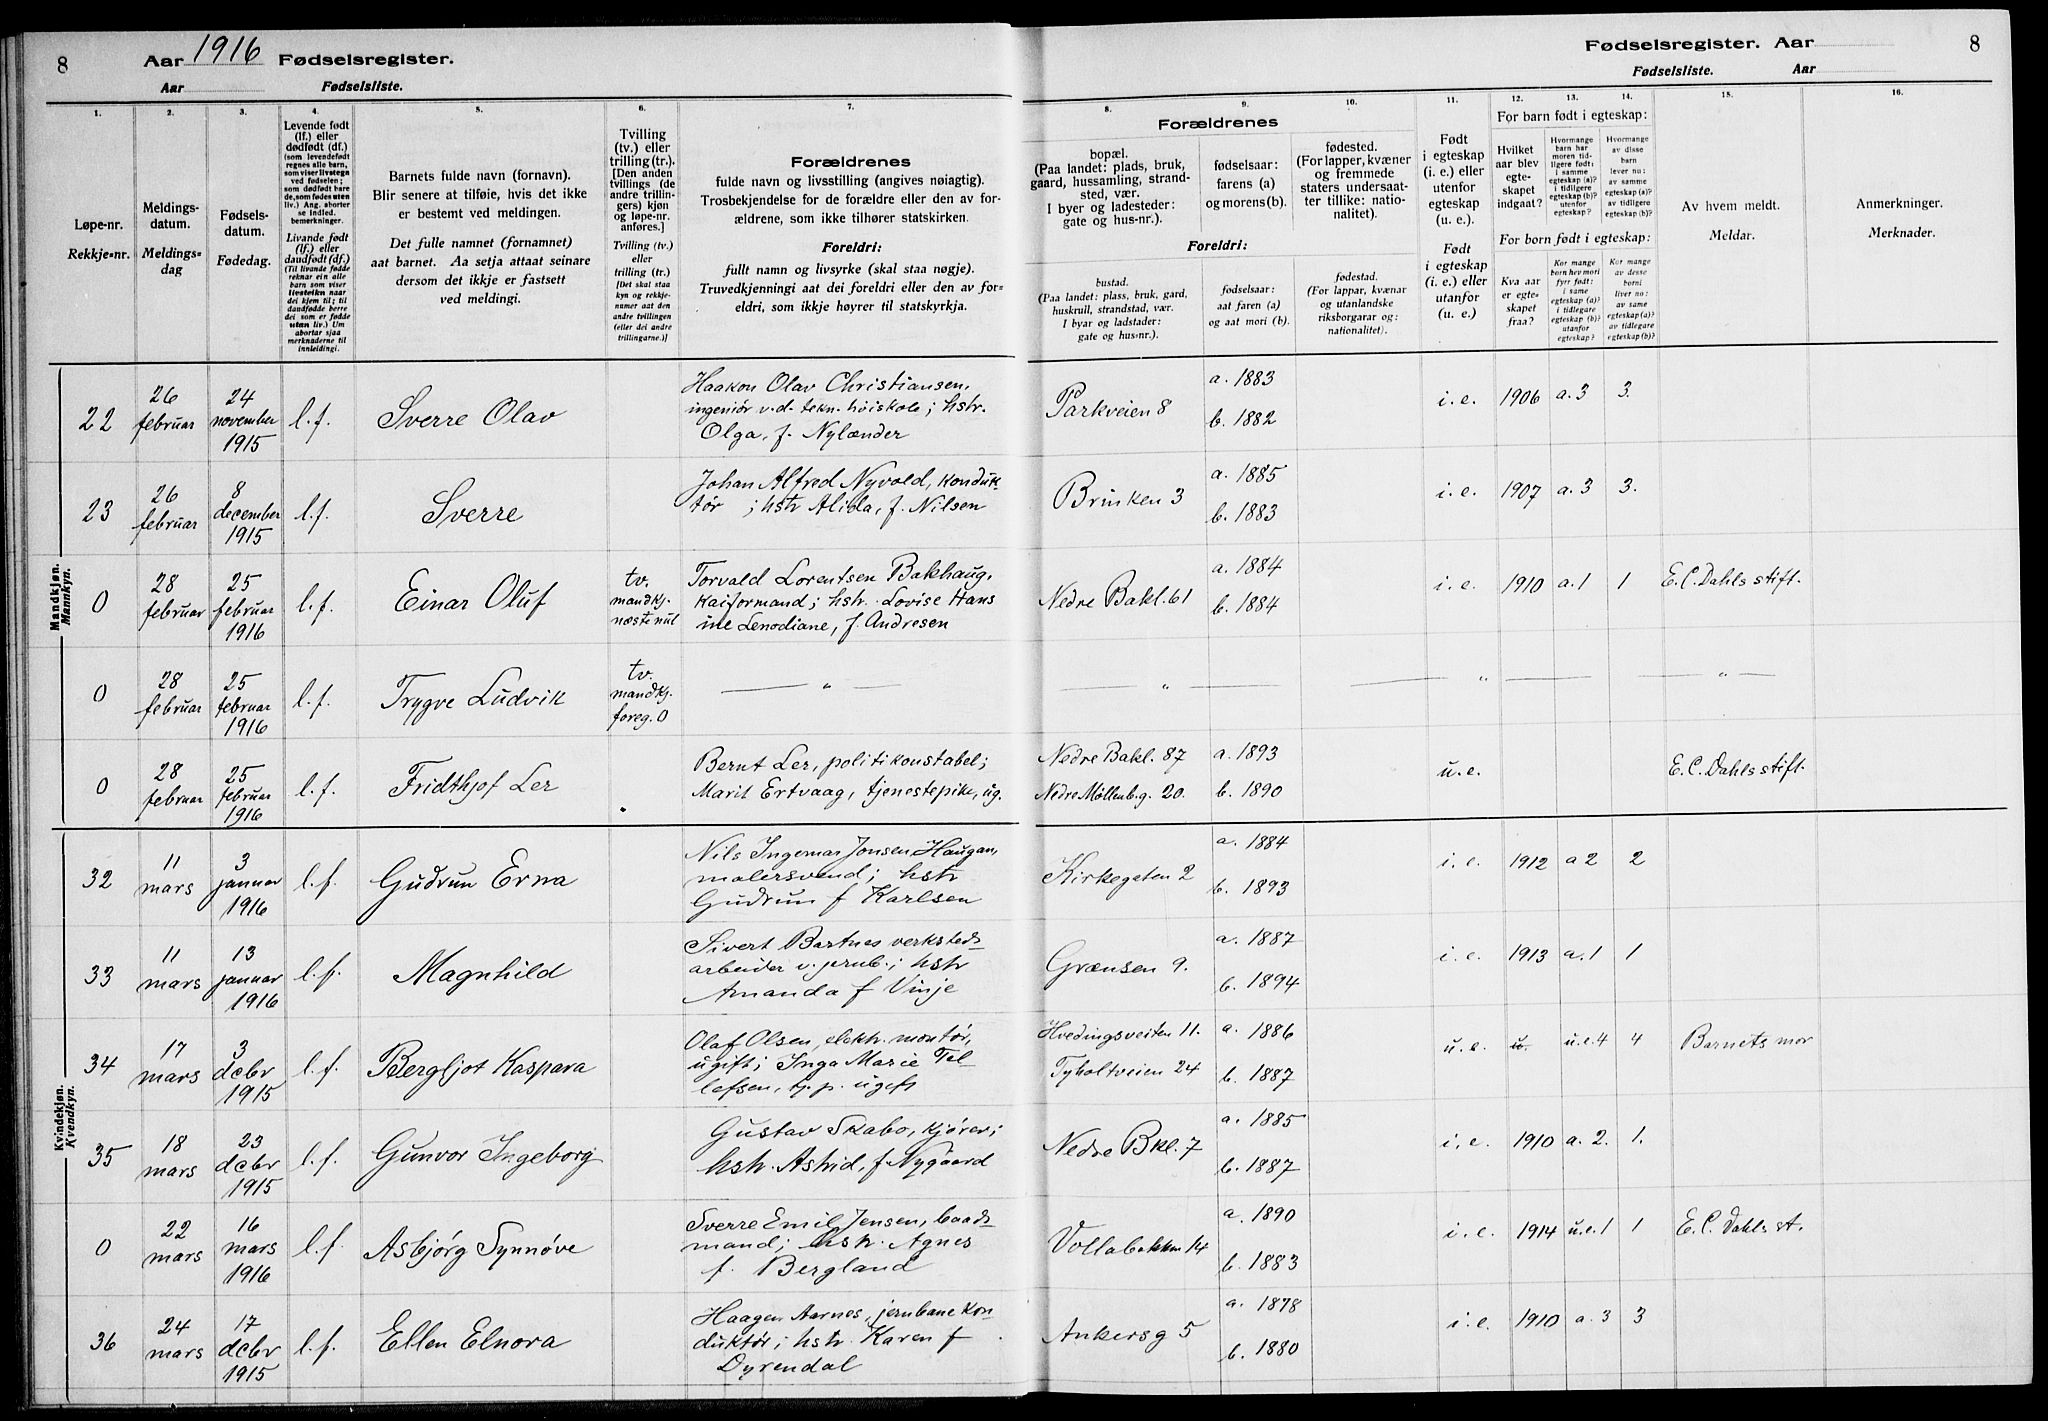 8
Aar 1916 Fødselsregister.
Aar Fødselsliste.
Fødselsregister. Aar
8
Fødselsliste. Aar
1.
Løpe-nr.
Rekkje-nr.
2.
Meldings-
datum.
Meldings-
dag
3.
Fødsels-
datum.
Fødedag.
4.
Levende født
(lf.) eller
dødfødt (df.)
(som levendefødt
regnes alle barn,
som viser livstegn
ved fødselen;
som dødfødt bare
de, som fødes uten
liv.) Ang. aborter
se indled.
bemerkninger.
Livande født
(lf.) eller
daudfødt (df.)
(Til livande fødde
reknar ein alle
barn som viser
livsteikn naar
dei kjem til; til
daudfødde berre
dei som er fødde
utan liv.) Um
abortar sjaa
merknaderne til
innleidingi.
5.
Barnets fulde navn (fornavn).
Blir senere at tilføie, hvis det ikke
er bestemt ved meldingen.
Det fulle namnet (fornamnet)
aat barnet. Aa setja attaat seinare
dersom det ikkje er fastsett
ved meldingi.
6.
Tvilling
(tv.) eller
trilling (tr.).
[Den anden
tvillings (de
andre trillin-
gers) kjøn
og løpe-nr.
anføres.]
Tvilling (tv.)
eller
trilling (tr.)
[Det skal staa
kyn og rekkje-
numer aat den
andre tvillingen
(eller dei andre
trillingarne.)]
7.
Forældrenes
fulde navn og livsstilling (angives nøiagtig).
Trosbekjendelse for de forældre eller den av for-
ældrene, som ikke tilhører statskirken.
Foreldri:
fullt namn og livsyrke (skal staa nøgje).
Truvedkjenningi aat dei foreldri eller den av for-
eldri, som ikkje høyrer til statskyrkja.
Forældrenes
8.
bopæl.
(Paa landet: plads, bruk,
gaard, hussamling, strand-
sted, vær.
I byer og ladesteder:
gate og hus-nr.).
Foreldri:
bustad.
(Paa landet: plass, bruk, gard,
huskrull, strandstad, vær.
I byar og ladstader:
gate og hus-nr.).
9.
fødselsaar:
farens (a)
og morens (b).
fødselsaar:
aat faren (a)
og aat mori (b).
10.
fødested.
(For lapper, kvæner
og fremmede
staters undersaat-
ter tillike: natio-
nalitet).
fødestad.
(For lappar, kvænar
og utanlandske
riksborgarar og:
nationalitet).
11.
Født
i egteskap
(i. e.) eller
utenfor
egteskap
(u. e.).
Født
i egteskap
(i. e.) eller
utanfor
(u. e.)
For barn født i egteskap:
12.
Hvilket
aar blev
egte-
skapet
indgaat?
13.
Hvormange
barn har
moren tid-
ligere født:
i samme
egteskap (a)?
i tidligere
egteskap (b)?
utenfor
egteskap?
14.
Hvormange
av disse
barn
lever nu:
av samme
egteskap (a)?
av tidligere
egteskap (b)?
For born født i egteskap:
Kva aar
er egte-
skapet
fraa?
Kor mange
born hev mori
fyrr født:
i same
egteskap (a)?
i tidlegare
egteskap (b)?
utanfor
egteskap?
Kor mange
av desse
borni
liver no:
av same
egteskap (a)?
av tidlegare
egteskap (b)?
15.
Av hvem meldt.
Meldar.
16.
Anmerkninger.
Merknader.
Mandkjøn.
Mannkyn.
22 26 februar 24 november 1915 l. f. Sverre Olav
Haakon Olav Christiansen,
ingeniør v. d. tekn. høiskole; hstr.
Olga, f. Nylænder
Parkveien 8 a. 1883 b. 1882 i. e. 1906 a. 3 3.
23 26 februar 8 december 1915 l. f. Sverre
Johan Alfred Nyvold, konduk-
tør ; hstr Alida, f. Nilsen
Brinken 3 a. 1885 b. 1883 i. e. 1907 a. 3 3.
0 28 februar 25 februar 1916 l. f. Einar Oluf tv. mandkj. næste nul
Torvald Lorentsen Bakhaug,
kaiformand; hstr. Lovise Hans
ine Lenodiane, f. Andresen
Nedre Bakl. 61 a. 1884 b. 1884 i. e. 1910 a. 1 1 E. C. Dahls stift.
0 28 februar 25 februar 1916 l. f. Trygve Ludvik tv. mandkj. foreg. 0
— " — — " — — " — — " —
0 28 februar 25 februar 1916 l. f. Fridthjof Ler
Bernt Ler, politikonstabel;
Marit Ertvaag, tjenestepike, ug.
Nedre Bakl. 87 a. 1893 u. e. E. C. Dahls stift.
Nedre Møllenb.g. 20. b. 1890
Kvindekjøn.
Kvendkyn.
32 11 mars 3 januar 1916 l. f. Gudrun Erna
Nils Ingemar Jonsen Haugan,
malersvend; hstr
Gudrun f Karlsen
Kirkegaten 2 a. 1884 b. 1893 i. e. 1912 a 2 2
33 11 mars 13 januar 1916 l. f. Magnhild
Sivert Bartnes verksteds-
arbeider v. jernb.; hstr
Amanda f Vinje
Grænsen 9. a. 1887 b. 1894 i. e. 1913 a. 1 1
34 17 mars 3 dcbr 1915 l. f. Bergljot Kaspara
Olaf Olsen, elektr. montør,
ugift; Inga Marie Tel
lefsen, tj. p. ugift
Hvedingsveiten 11. a. 1886 u. e. u. u. e. 4 4 Barnets mor
Tyholtveien 24 b. 1887
35 18 mars 23 dcbr 1915 l. f. Gunvor Ingeborg
Gustav Skabo, kjører;
hstr. Astrid, f. Nygaard
Nedre Bkl. 7 a. 1885 b. 1887 i. e. 1910 a. 2. 1.
0 22 mars 16 mars 1916 l. f. Asbjørg Synnøve
Sverre Emil Jensen, baads-
mand; hstr. Agnes
f. Bergland
Vollabakken 14 a. 1890 b. 1883 i. e. 1914 u. e. 1 1 E. C. Dahls st.
36 24 mars 17 dcbr 1915 l. f. Ellen Elnora
Haagen Aarnes, jernbane kon-
duktør; hstr. Karen f
Dyrendal
Ankersg 5 a. 1878 b. 1880 i. e. 1910 a. 3 3